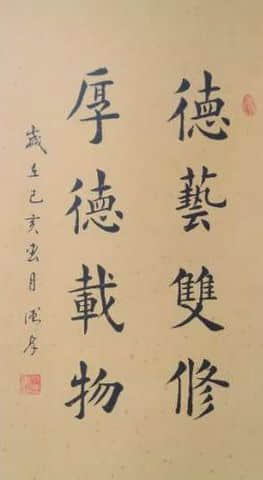 德藝雙修
厚德載物
歲在己亥